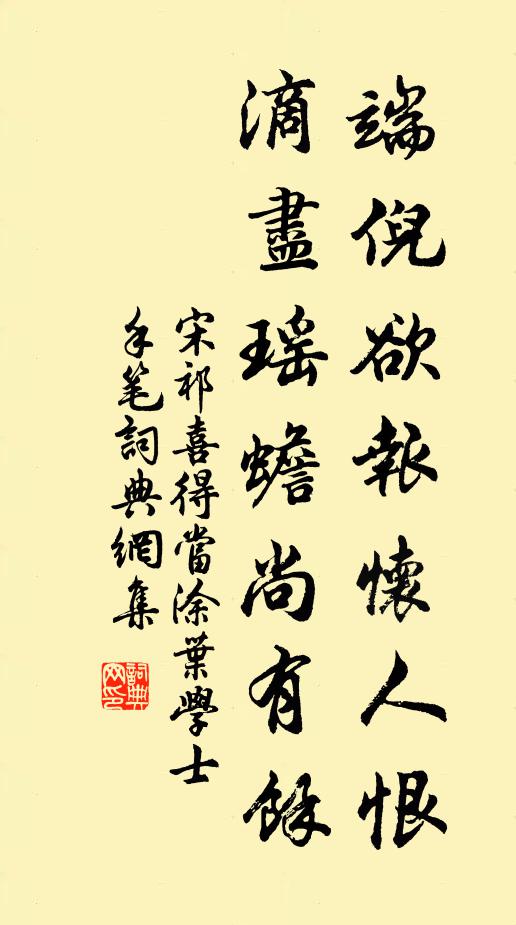 端倪欲報懷人恨
滴盡瑶蟾尚有餘
宋祁喜得當涂葉學士
手笔詞典網集
詞典网印